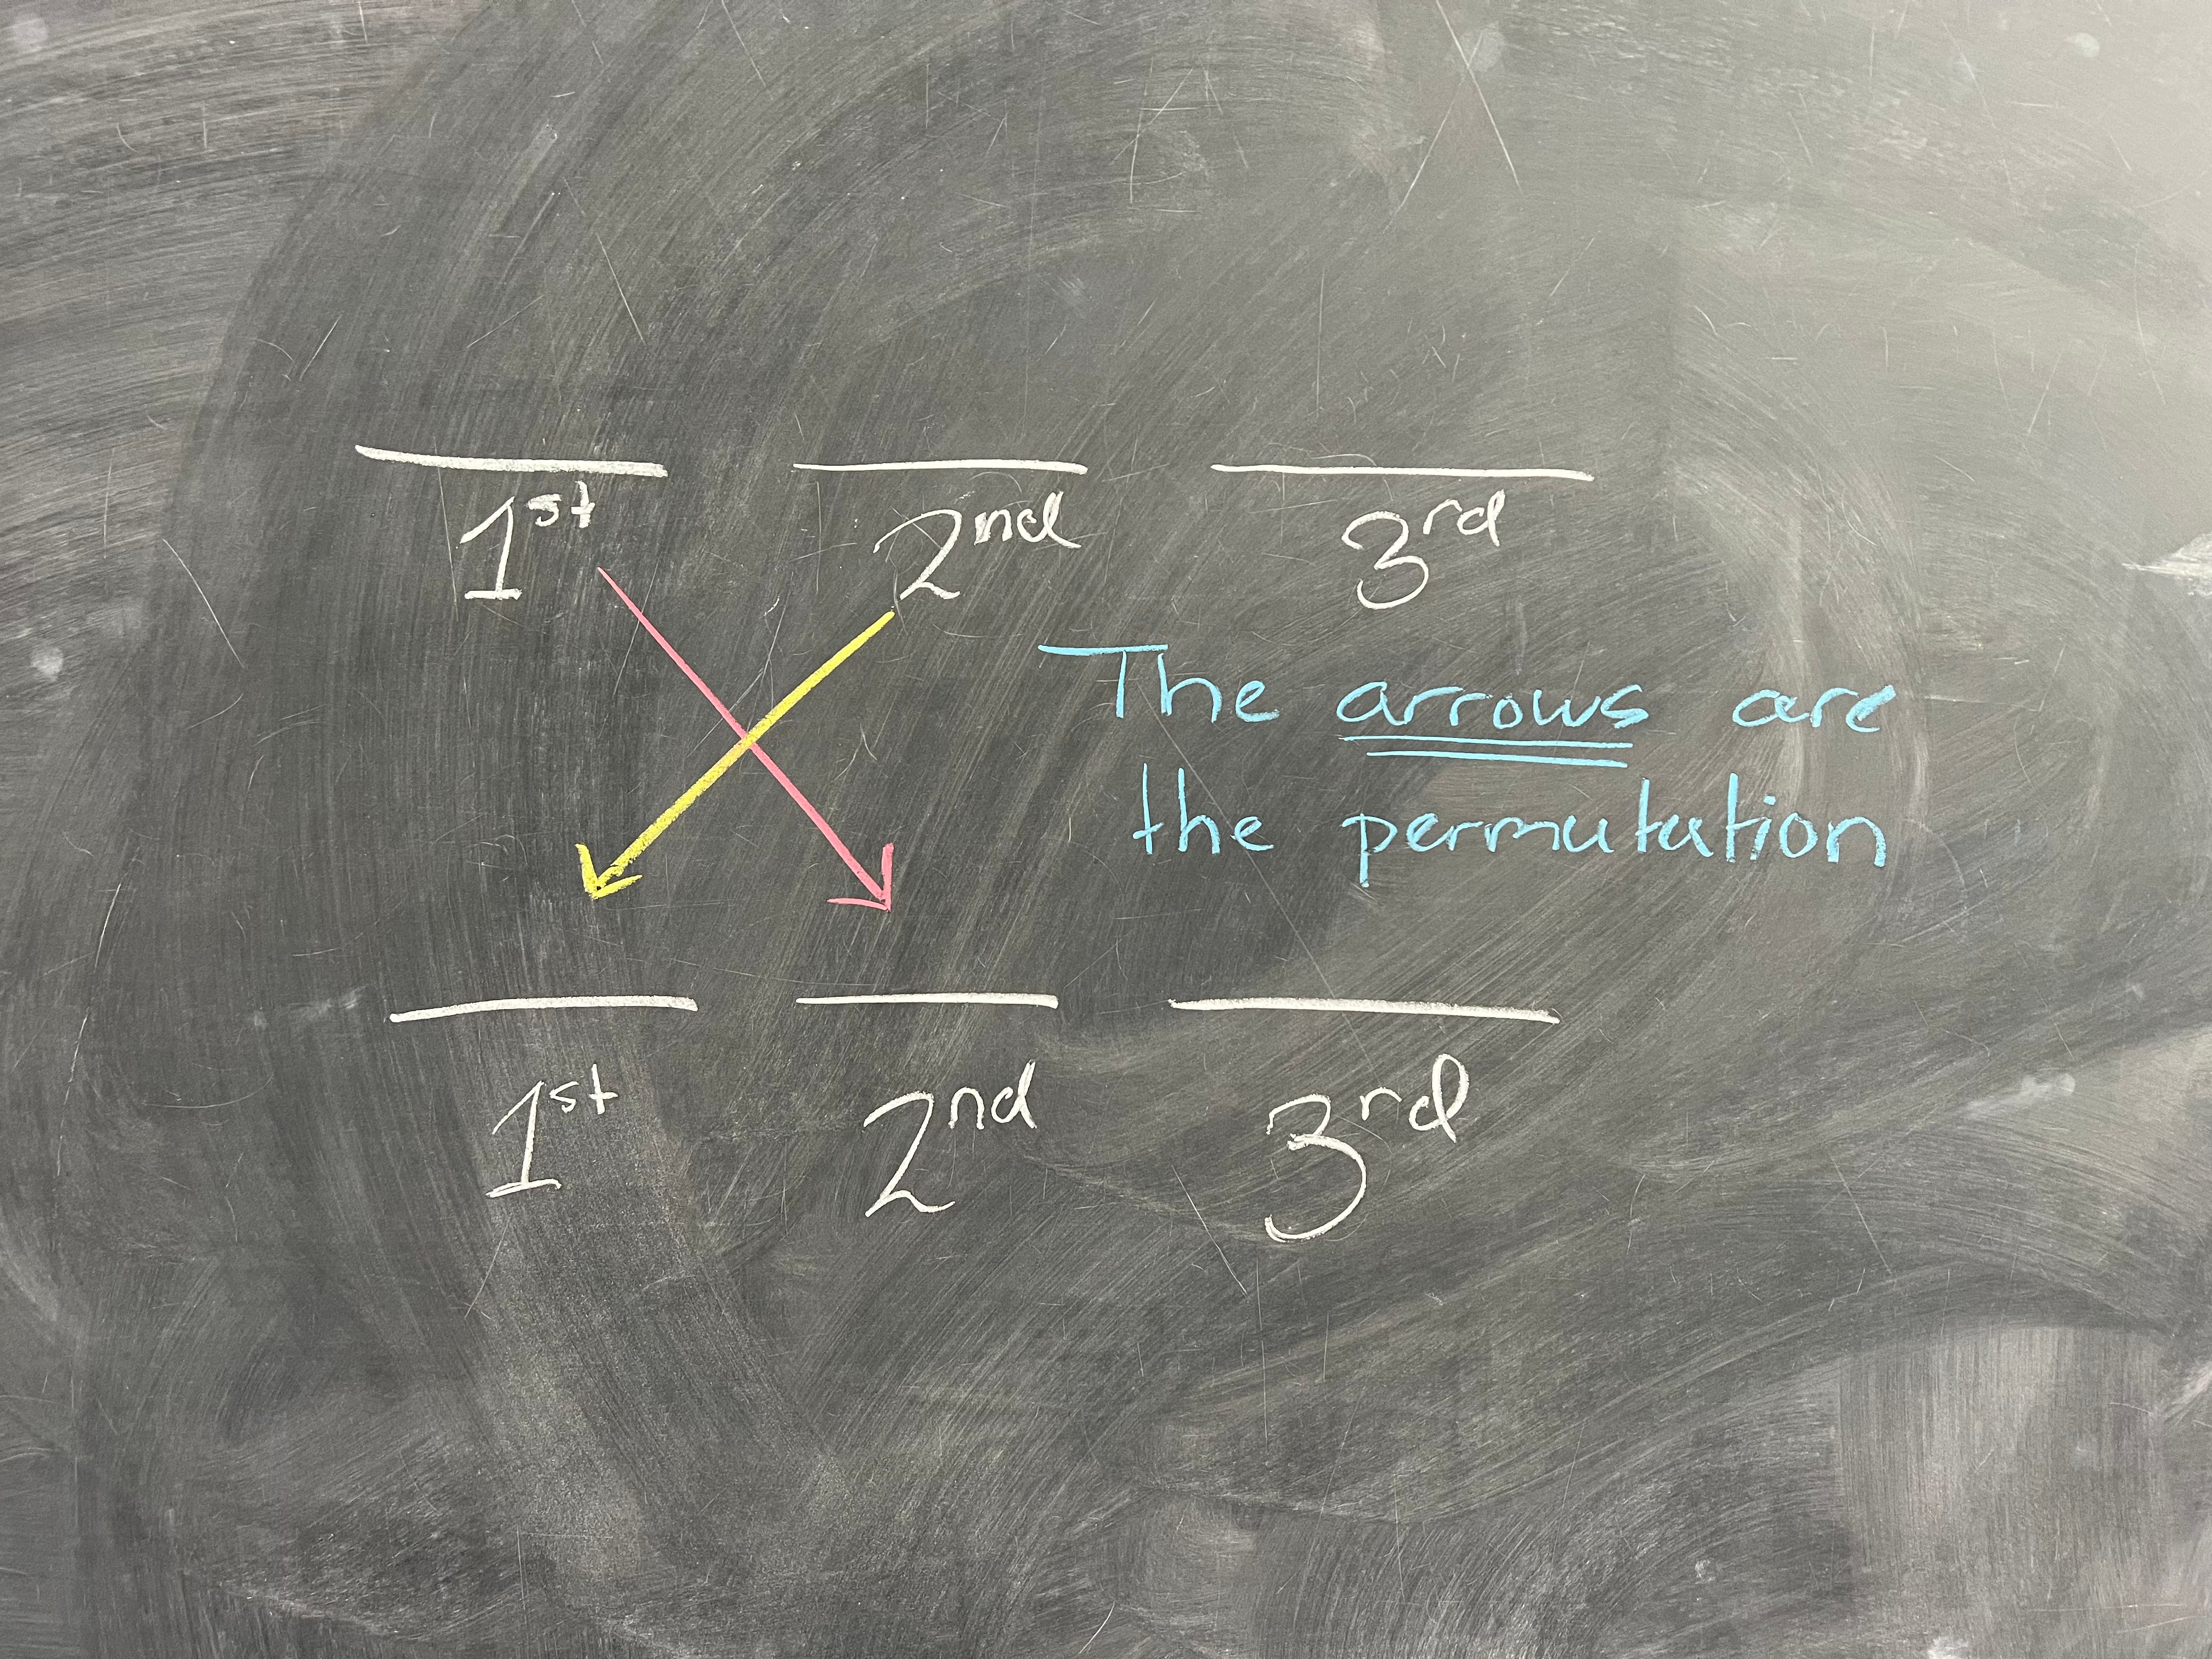 1st 2nd 3rd
The arrows are
the permutation
1st 2nd 3rd